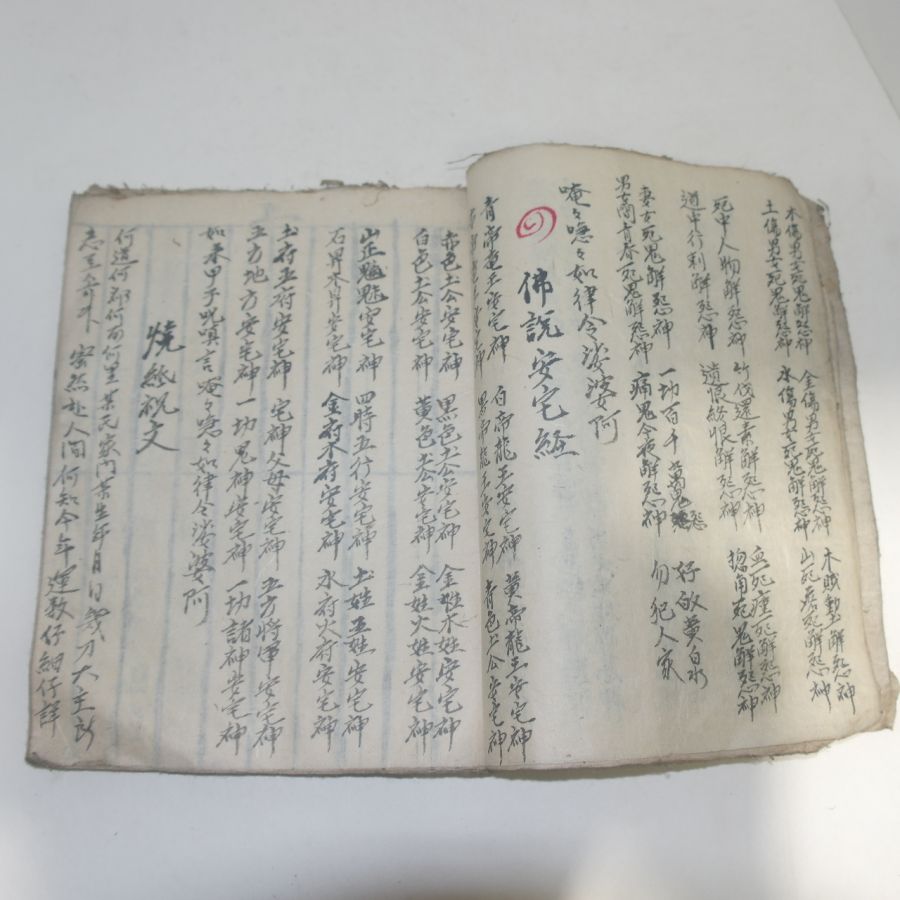 木傷男女死鬼解怨神 金傷男女死鬼解怨神 木賊動土解怨神
土傷男女死鬼解怨神 水傷男女死鬼解怨神 山死虎死解怨神
死中人物解怨神 竹伐還青解怨神 血死瘟死解怨神
道中行利解怨神 遺恨紛恨解怨神 惣角死鬼解怨神
妻女死鬼解怨神 一功百千萬鬼怨 好敬黃白水
男女商青春死鬼解怨神 痛鬼今夜解怨神 勿犯人家
唵々噫々如律令娑婆阿
佛說安宅經
青帝龍王安宅神 白帝龍王安宅神 黃帝龍王安宅神
黑帝龍王安宅神 青色土公安宅神
赤色土公安宅神 黑色土公安宅神 金姓木姓安宅神
白色土公安宅神 黃色土公安宅神 金姓火姓安宅神
山正魍魅安宅神 四時五行安宅神 土姓五姓安宅神
石界木界安宅神 金府木府安宅神 水府火府安宅神
土府五府安宅神 宅神父母安宅神 五方將軍安宅神
五方地方安宅神 一功鬼神安宅神 一功諸神安宅神
如來甲子呪嗔言唵々噫々如律令娑婆阿
燒紙祝文
何道何郡何面何里某氏家門某生年月日 大主
人間何知今年運數仔細仔詳